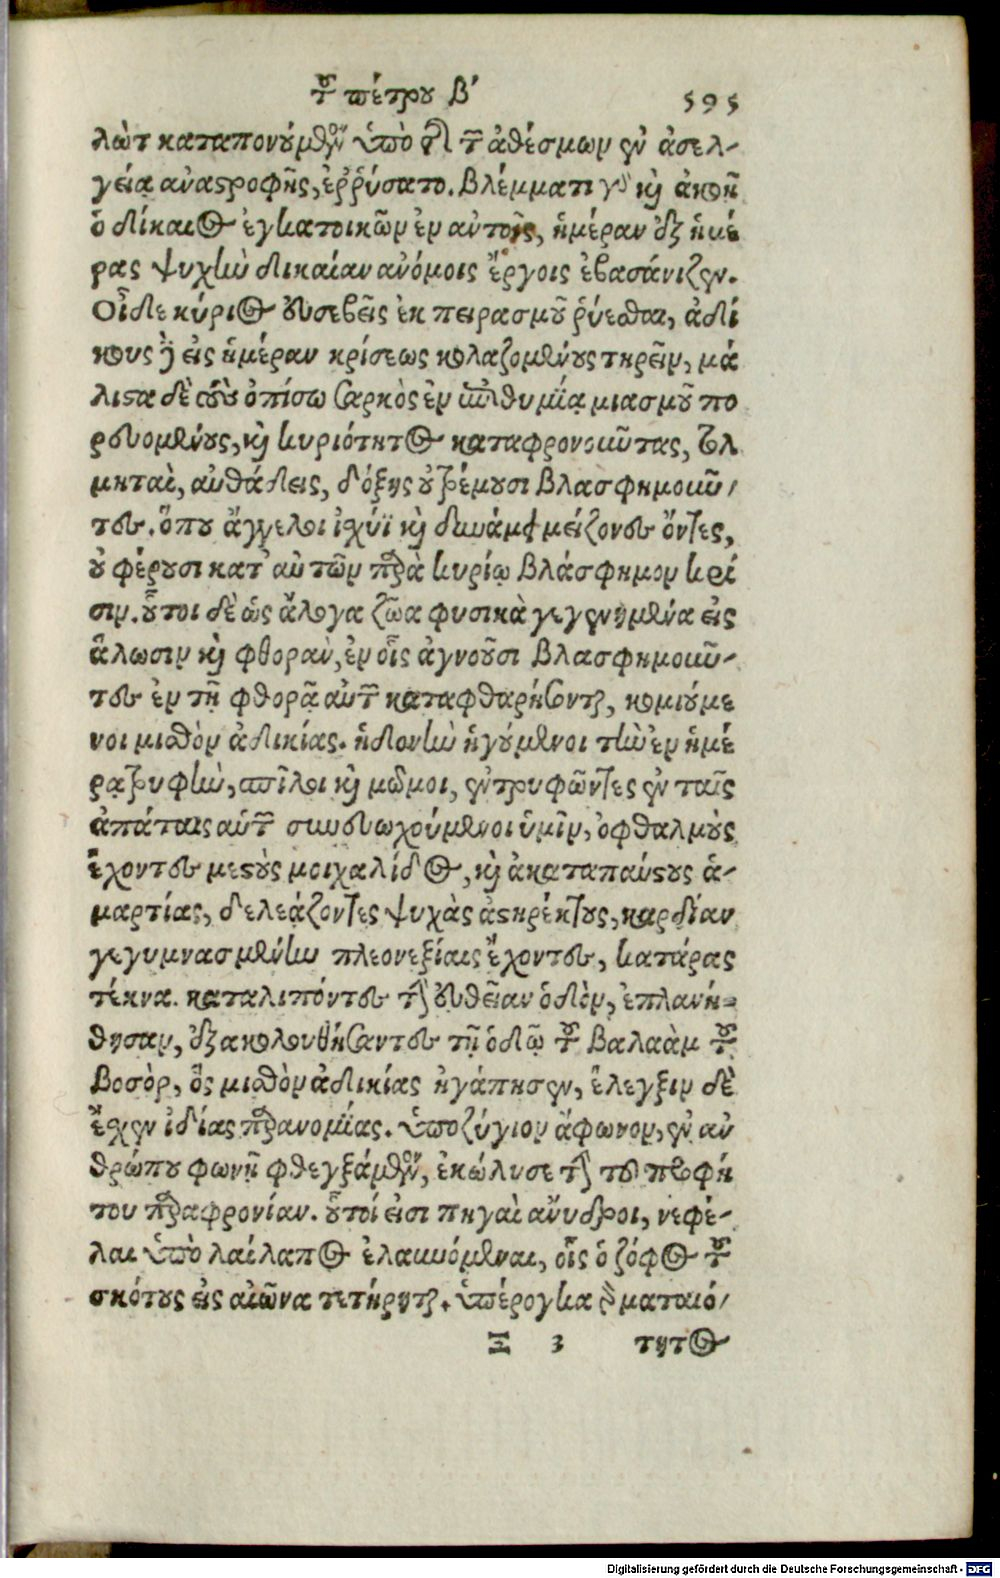 τοῦ πέτρου β′ 595
λὼτ καταπονούμενον ὑπὸ τῆς τῶν ἀθέσμων ἐν ἀσελ-
γείᾳ ἀναστροφῆς, ἐῤῥύσατο. βλέμματι γὰρ καὶ ἀκοῇ
ὁ δίκαιος ἐγκατοικῶν ἐν αὐτοῖς, ἡμέραν ἐξ ἡμέ
ρας ψυχὴν δικαίαν ἀνόμοις ἔργοις ἐβασάνιζεν.
Οἶδε κύριος εὐσεβεῖς ἐκ πειρασμοῦ ῥύεσθαι, ἀδί
κους δὲ εἰς ἡμέραν κρίσεως κολαζομένους τηρεῖν, μά
λιστα δὲ τοὺς ὀπίσω σαρκὸς ἐν ἐπιθυμίᾳ μιασμοῦ πο
ρευομένους, καὶ κυριότητος καταφρονοῦντας, τολ
μηταὶ, αὐθάδεις, δόξης οὐ τρέμουσι βλασφημοῦν/
τες. ὅπου ἄγγελοι ἰσχύϊ καὶ δυνάμει μείζονες ὄντες,
οὐ φέρουσι κατ' αὐτῶν παρὰ κυρίῳ βλάσφημον κρί
σιν. οὗτοι δὲ ὡς ἄλογα ζῶα φυσικὰ γεγεννημένα εἰς
ἅλωσιν καὶ φθορὰν, ἐν οἷς ἀγνοοῦσι βλασφημοῦν-
τες ἐν τῇ φθορᾷ αὐτῶν καταφθαρήσονται, κομιούμε
νοι μισθὸν ἀδικίας. ἡδονὴν ἡγούμενοι τὴν ἐν ἡμέ
ρᾳ τρυφὴν, σπῖλοι καὶ μῶμοι, ἐντρυφῶντες ἐν ταῖς
ἀπάταις αὑτῶν συνευωχούμενοι ὑμῖν, ὀφθαλμοὺς
ἔχοντες μεστοὺς μοιχαλίδος, καὶ ἀκαταπαύστους ἁ-
μαρτίας, δελεάζοντες ψυχὰς ἀστηρίκτους, καρδίαν
γεγυμνασμένην πλεονεξίαις ἔχοντες, κατάρας
τέκνα. καταλιπόντες τὴν εὐθεῖαν ὁδὸν, ἐπλανή-
θησαν, ἐξακολουθήσαντες τῇ ὁδῷ τοῦ Βαλαὰμ τοῦ
Βοσὸρ, ὃς μισθὸν ἀδικίας ἠγάπησεν, ἔλεγξιν δὲ
ἔσχεν ἰδίας παρανομίας. ὑποζύγιον ἄφωνον, ἐν ἀν
θρώπου φωνῇ φθεγξάμενον, ἐκώλυσε τὴν τοῦ προφή
του παραφρονίαν. οὗτοί εἰσι πηγαὶ ἄνυδροι, νεφέ-
λαι ὑπὸ λαίλαπος ἐλαυνόμεναι, οἷς ὁ ζόφος τοῦ
σκότους εἰς αἰῶνα τετήρηται. ὑπέρογκα γὰρ ματαιό/
Ξ 3 τητος
Digitalisierung gefördert durch die Deutsche Forschungsgemeinschaft - DFG